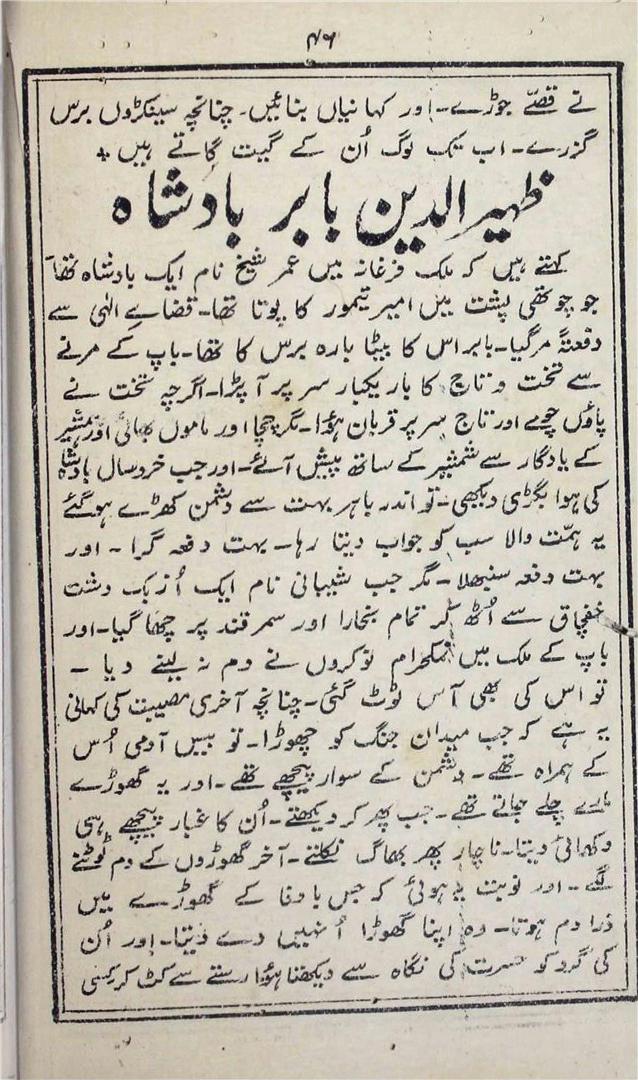 ۴۶
نے قصّے جوڑے۔ اور کہانیاں بنائیں۔ چنانچہ سینکڑوں برس
گزرے۔ اب تک لوگ اُن کے گیت گاتے ہیں ٭
ظہیر الدین بابر بادشاہ
کہتے ہیں کہ ملک فرغانہ میں عمر شیخ نام ایک بادشاہ تھا۔
جو چوتھی پشت میں امیر تیمور کا پوتا تھا۔ قضاے الٰہی سے
دفعتہً مرگیا۔ بابر اس کا بیٹا بارہ برس کا تھا۔ باپ کے مرنے
سے تخت و تاج کا بار یکبار سر پر آپڑا۔ اگرچہ تخت نے
پاؤں چومے اور تاج سر پر قربان ہؤا۔ مگر چچا اور ماموں بھائی اور ہمشیر
کے یادگار سے شمشیر کے ساتھ پیش آئے۔ اور جب خردسال بادشاہ
کی ہوا بگڑی دیکھی۔ تو اندر باہر بہت سے دشمن کھڑے ہوگئے
یہ ہمّت والا سب کو جواب دیتا رہا۔ بہت دفعہ گرا ۔ اور
بہت دفعہ سنبھلا ۔ مگر جب شیبانی نام ایک اُزبک دشت
خفچاق سے اُٹھ کر تمام بخارا اور سمرقند پر چھا گیا۔ اور
باپ کے ملک میں نمکحرام نوکروں نے دم نہ لینے دیا ۔
تو اس کی بھی آس ٹوٹ گئی۔ چنانچہ آخری مصیبت کی کہانی
یہ ہے کہ جب میدان جنگ کو چھوڑا۔ تو بیس آدمی اُس
کے ہمراہ تھے۔ دشمن کے سوار پیچھے تھے۔ اور یہ گھوڑے
مارے چلے جاتے تھے۔ جب پھر کر دیکھتے۔ اُن کا غبار پیچھے ہی
دکھائی دیتا۔ ناچار پھر بھاگ نکلتے۔ آخر گھوڑوں کے دم ٹوٹنے
لگے ۔ اور نوبت یہ ہوئی کہ جس باوفا کے گھوڑے میں
ذرا دم ہوتا۔ وہ اپنا گھوڑا اُنہیں دے دیتا۔ اور اُن
کی گرد کو حسرت کی نگاہ سے دیکھتا ہؤا رستے سے کٹ کر کسی